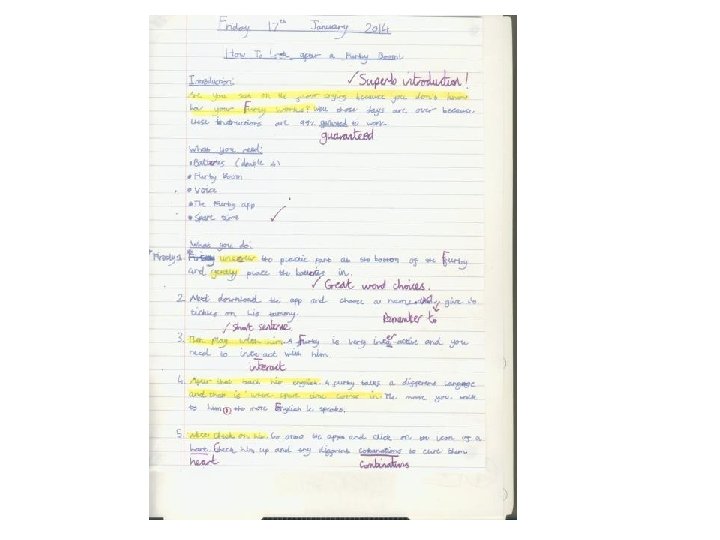 Friday 17th January 2014
How To Look after a Furby Boom!
Introduction: ✓ Superb introduction!
Are you sat on the floor crying because you don't know
how your Furby works? Well those days are over because
these instructions are 99% to work.
guaranteed
What you need:
• Batteries (double A)
• Furby Boom
• Voice
• The Furby app
• Spare time ✓
What you do:
Firstly 1. unscrew the plastic part at the bottom of the Furby
and gently place the batteries in.
✓ Great word choices.
2. Next download the app and choose a name and give it
tickles on his tummy. Remember to
✓ Short sentence
3. Then play with him. A Furby is very interactive and you
need to inter act with him.
interact
4. After that teach him english. A furby talks a different language
and that is were spare time comes in. The more you talk
to him, the more English he speaks.
5. After check on him. Go onto the app and click on the icon of a
hart. Check him up and try different to cure them
heart combinations